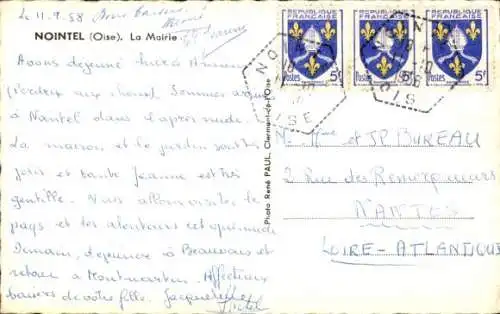 Le 11.9.58 Bons baisers
NOINTEL (Oise). La Mairie
Avons déjeuné hier à
Sommes
à Nantel dans l'après midi
La maison et le jardin sont
jolis et tante Jeanne est très
gentille. Nous allons visiter le
pays et les alentours cet après midi
Demain, déjeuner à Beauvais et
retour à Montmartin. Affectueux
baisers de votre fille. Jacqueline
Michel
Photo René PAUL, Clermont-de-l'Oise
REPUBLIQUE FRANÇAISE
Postes 5f
REPUBLIQUE FRANÇAISE
Postes 5f
REPUBLIQUE FRANÇAISE
Postes 5f
NOINTEL
OISE
M. Mme et JP BUREAU
2 Rue des Remorqueurs
NANTES
LOIRE-ATLANTIQUE